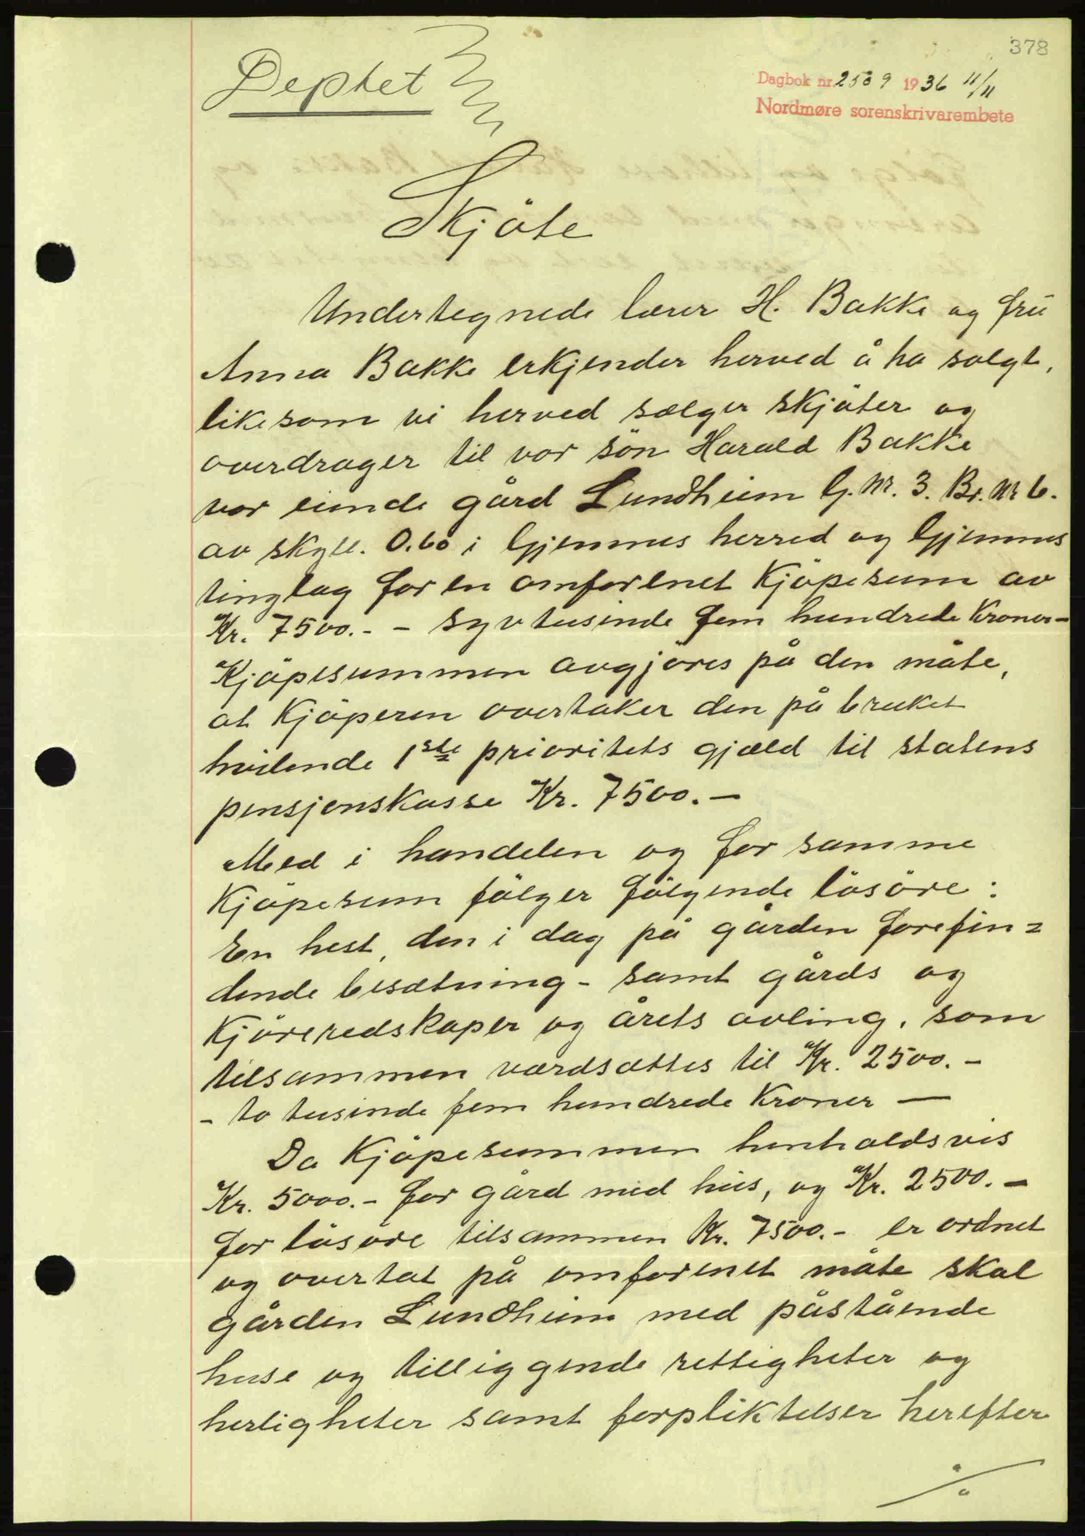 378
Deptet
Dagbok nr. 2509 1936 11/11
Nordmøre sorenskrivarembete
Skjöte
Undertegnede lærer H. Bakke og fru
Anna Bakke erkjender herved å ha solgt,
likesom vi herved sælger skjöter og
overdrager til vor sön Harald Bakke
vor eiende gård Lundheim G. Nr. 3. Br. Nr 6.
av skyll. 0.60 i Gjemnes herred og Gjemnes
tinglag for en omforenet Kjöpesum av
Kr. 7500.- - syvtusinde fem hundrede Kroner-
Kjöpesummen avgjöres på den måte,
at Kjöperen overtaker den på bruket
hvilende 1ste prioritets gjæld til statens
pensjonskasse Kr. 7500.-
Med i handelen og for samme
Kjöpesum fölger fölgende lösöre:
En hest, den i dag på gården forefin=
dende besætning - samt gårds og
Kjöreredskaper og årets avling, som
tilsammen værdsættes til Kr. 2500.-
- to tusinde fem hundrede Kroner -
Da Kjöpesummen henholdsvis
Kr. 5000.- for gård med hus, og Kr. 2500.-
for lösöre tilsammen Kr. 7500.- er ordnet
og overtat på omforenet måte skal
gården Lundheim med påstående
huse og tilliggende rettigheter og
herligheter samt forpliktelser herefter
%